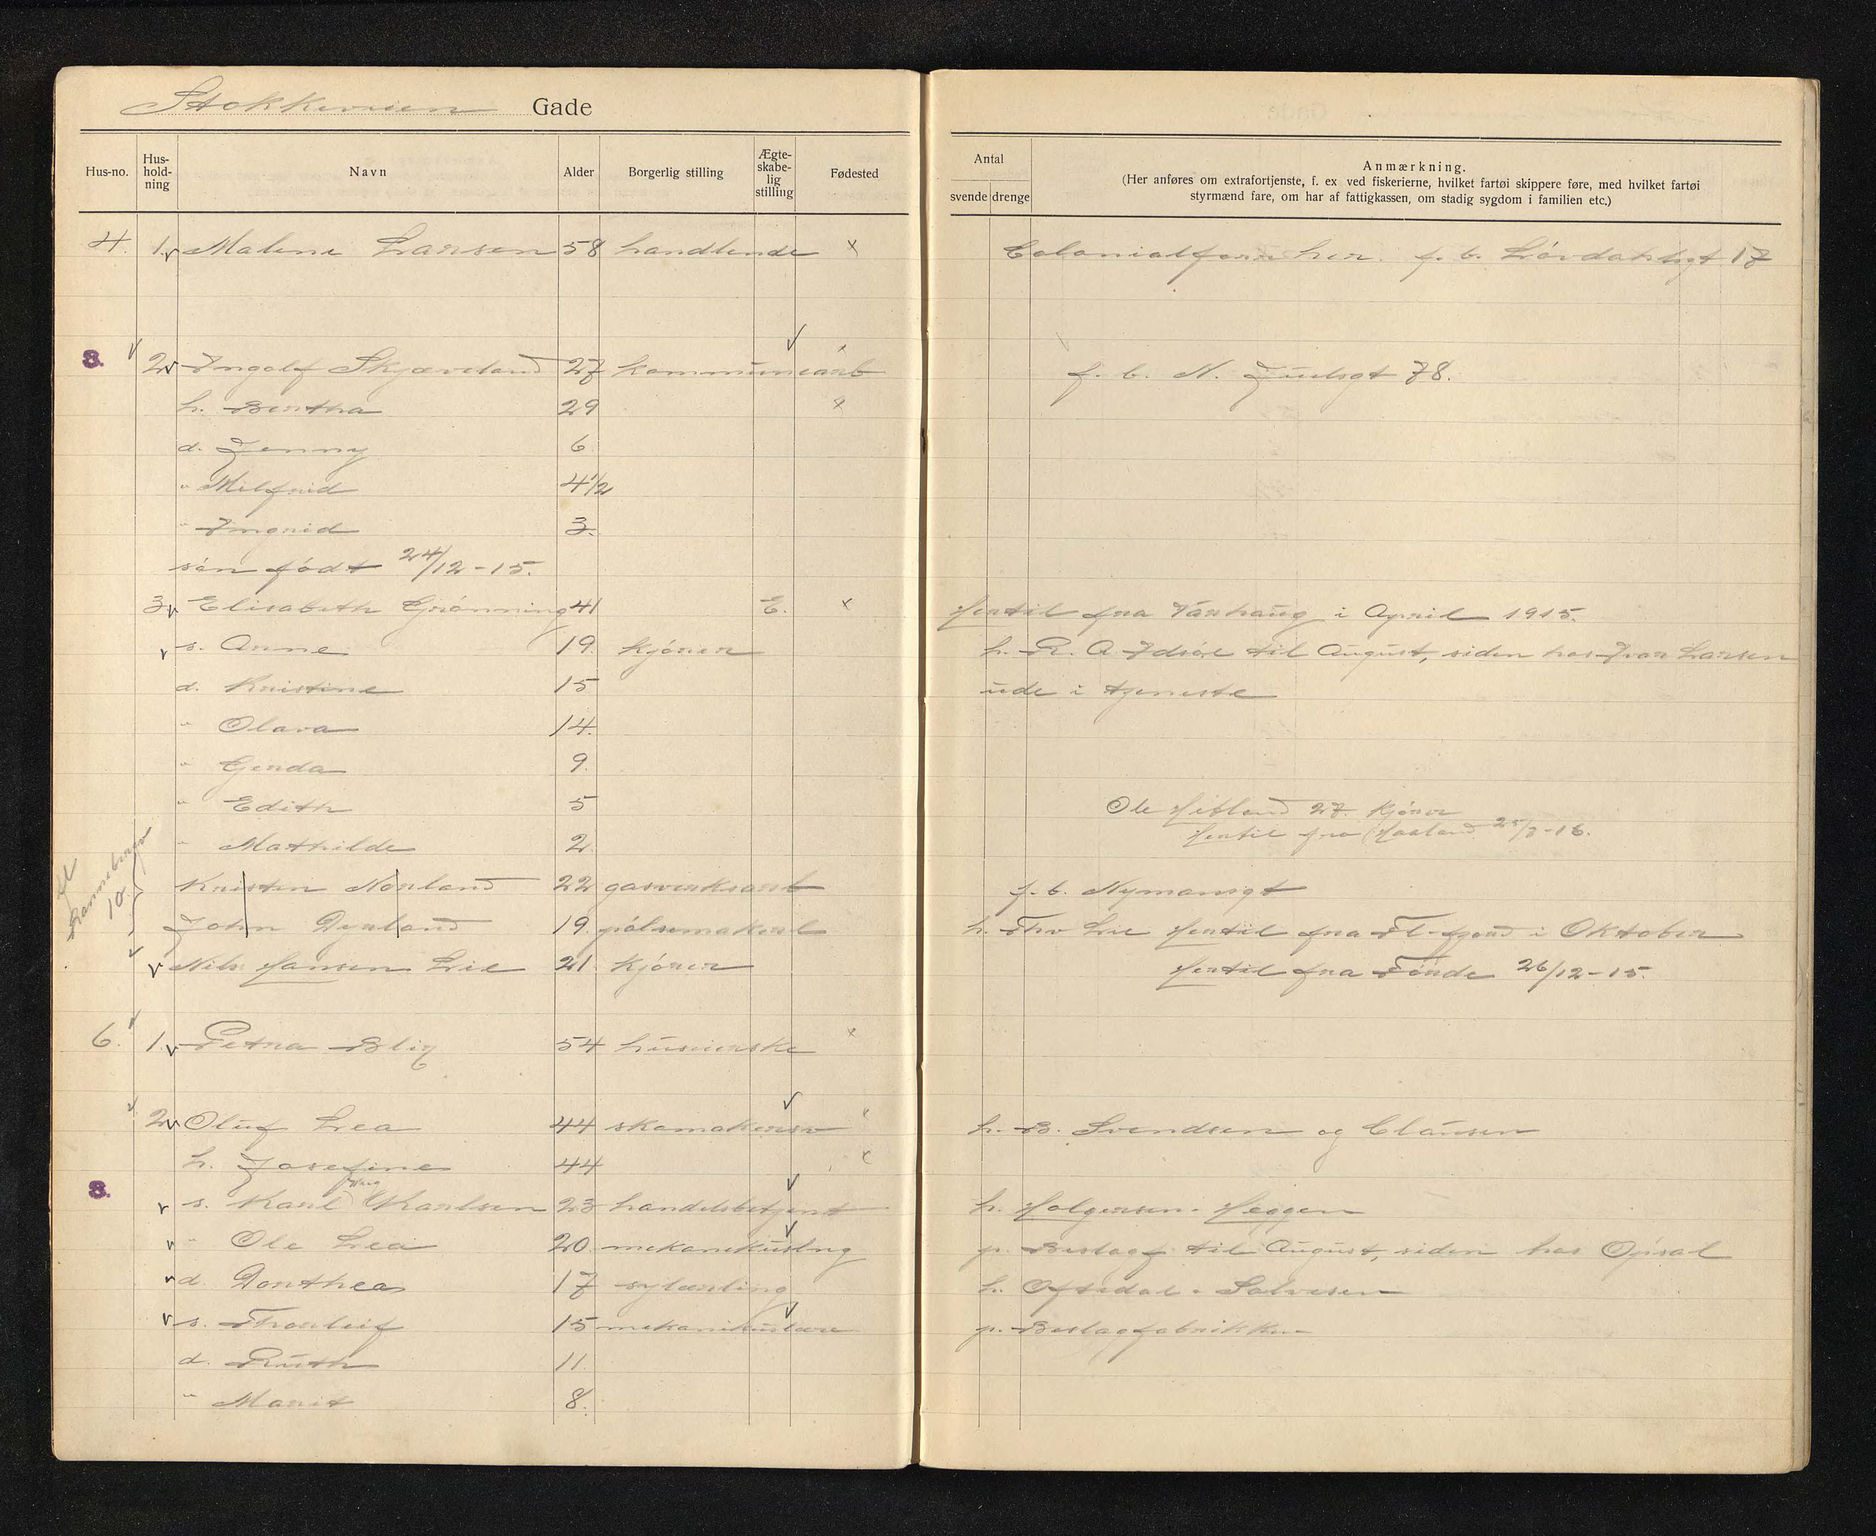 Stokkeveien Gade
Hus-no. Hus-hold-ning Navn Alder Borgerlig stilling Ægte-skabe-lig stilling Fødested
Antal svende drenge
Anmærkning.
(Her anføres om extrafortjenste, f. ex ved fiskerierne, hvilket fartøi skippere føre, med hvilket fartøi
styrmænd fare, om har af fattigkassen, om stadig sygdom i familien etc.)
4. 1. Malene Larsen 58 handlende x Colonialforr her. f. b. Løvdahlsgt 17
3. 2 Ingolf Skjæveland 27 kommunearb x f. b. N. Juelsgt 78.
h. Bertha 29 x
d. Jenny 6
" Milfrid 4 1/2
" Ingrid 3.
søn født 24/12-15.
3 Elisabeth Grønning 41 E. x Hertil fra Varhaug i April 1915.
s. Arne 19. kjører h. R. A. Idsøe til August, siden hos Ivar Larsen
d. Kristine 15 ude i tjeneste
" Olava 14.
" Gerda 9.
" Edith 5 Ole 27. kjører
Hertil fra 25/3-16.
" Mathilde 2.
10.
Kristen Norland 22 gasverksarb f. b. Nymansgt
John Dyrland 19. pølsemakerl h. Thv Lie Hertil fra Fl-fjord i Oktober
Nils Hansen Lie 21. kjører Hertil fra Førde 26/12-15.
6. 1. Petra Blix 54 husvierske x
2 Oluf Lea 44 skomakersv x h. B. Svendsen og Clausen
h. Josefine 44 x
3. s. Karl Karlsen 23 handelsbetjent h. Holgersen. Heggen
" Ole Lea 20. mekanikuslrlg p. Beslagf til August, siden hos Opsal
d. Dorthea 17 sylærling h. Oftedal. Salvesen
s. Thorleif 15 mekanikuslære p. Beslagfabrikken
d. Ruth 11.
" Marit 8.